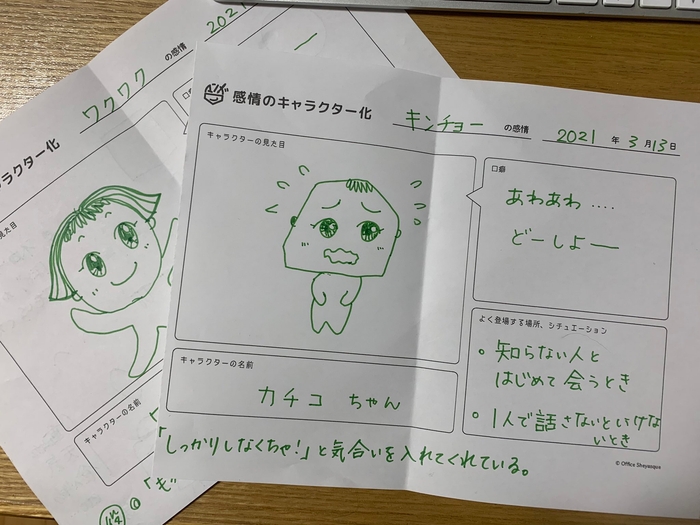 感情のキャラクター化
キンチョー の感情
2021 年 3 月 13 日
キャラクターの見た目
口癖
あわあわ....
どーしよー
よく登場する場所、シチュエーション
• 知らない人と
はじめて会うとき
• 1人で話さないといけな
いとき
キャラクターの名前
カチコ ちゃん
「しっかりしなくちゃ!」と気合いを入れてくれている。
© Office Sheyasquo
ワクワク の感情
2021
ラクター化
見た目
キャラクターの名前